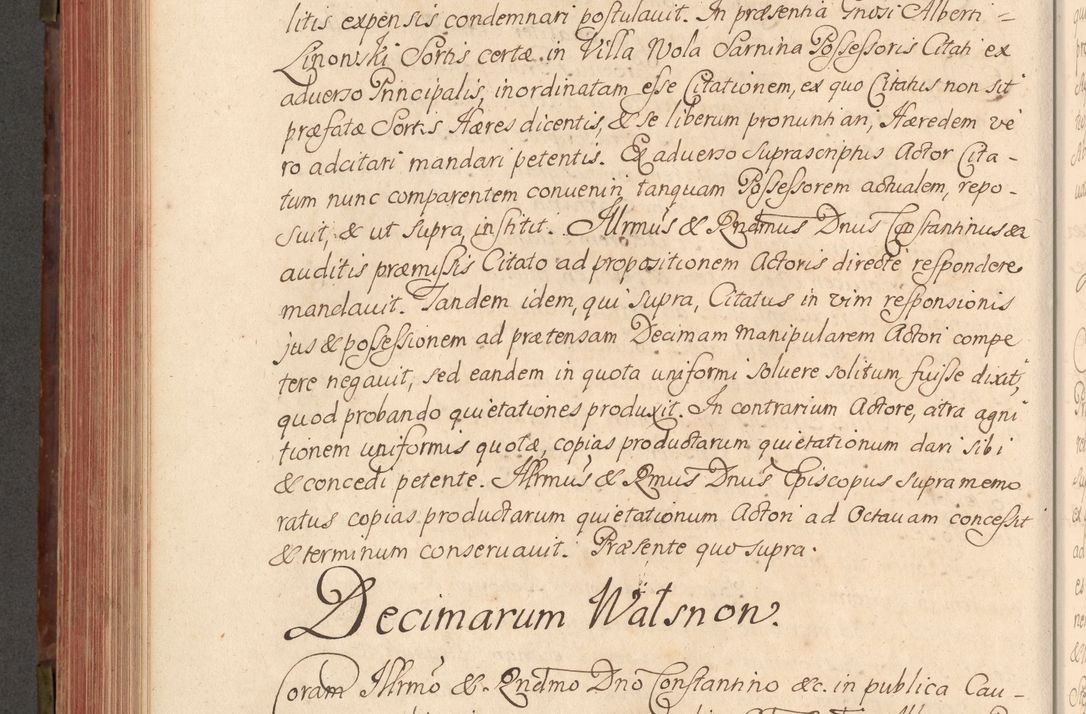 litis expensis condemnari postulavit. In præsentia Gnosi Alberti =
Linowski Sortis certæ in Villa Wola Sarnina Possessoris Citati ex
adverso Principalis, inordinatam esse Citationem, ex quo Citatus non sit
præfatæ Sortis Hæres dicentis, & se liberum pronuntiari, Hæredem ve
ro adcitari mandari petentis. Ex adverso suprascriptus Actor Cita -
tum nunc comparentem conveniri, tanquam Possessorem actualem, repo -
suit, & ut supra, institit. Illrmus & Rndmus Dnus Constantinus &a
auditis præmissis Citato ad propositionem Actoris directe respondere
mandavit. Tandem idem, qui supra, Citatus in vim responsionis
jus & possessionem ad prætensam Decimam Manipularem Actori compe
tere negavit, sed eandem in quota uniformi solvere solitum fuisse dixit,
quod probando quietationes produxit. In contrarium Actore, citra agni
tionem uniformis quotæ, copias productarum quietationum dari sibi
& concedi petente. Illrmus & Rmus Dnus Episcopus supra memo
ratus copias productarum quietationum Actori ad Octavam concessit
& terminum conservavit. Præsente quo supra.
Decimarum Watsnon.
Coram Illrmo &. Rndmo Dno Constantino &c. in publica Cau -